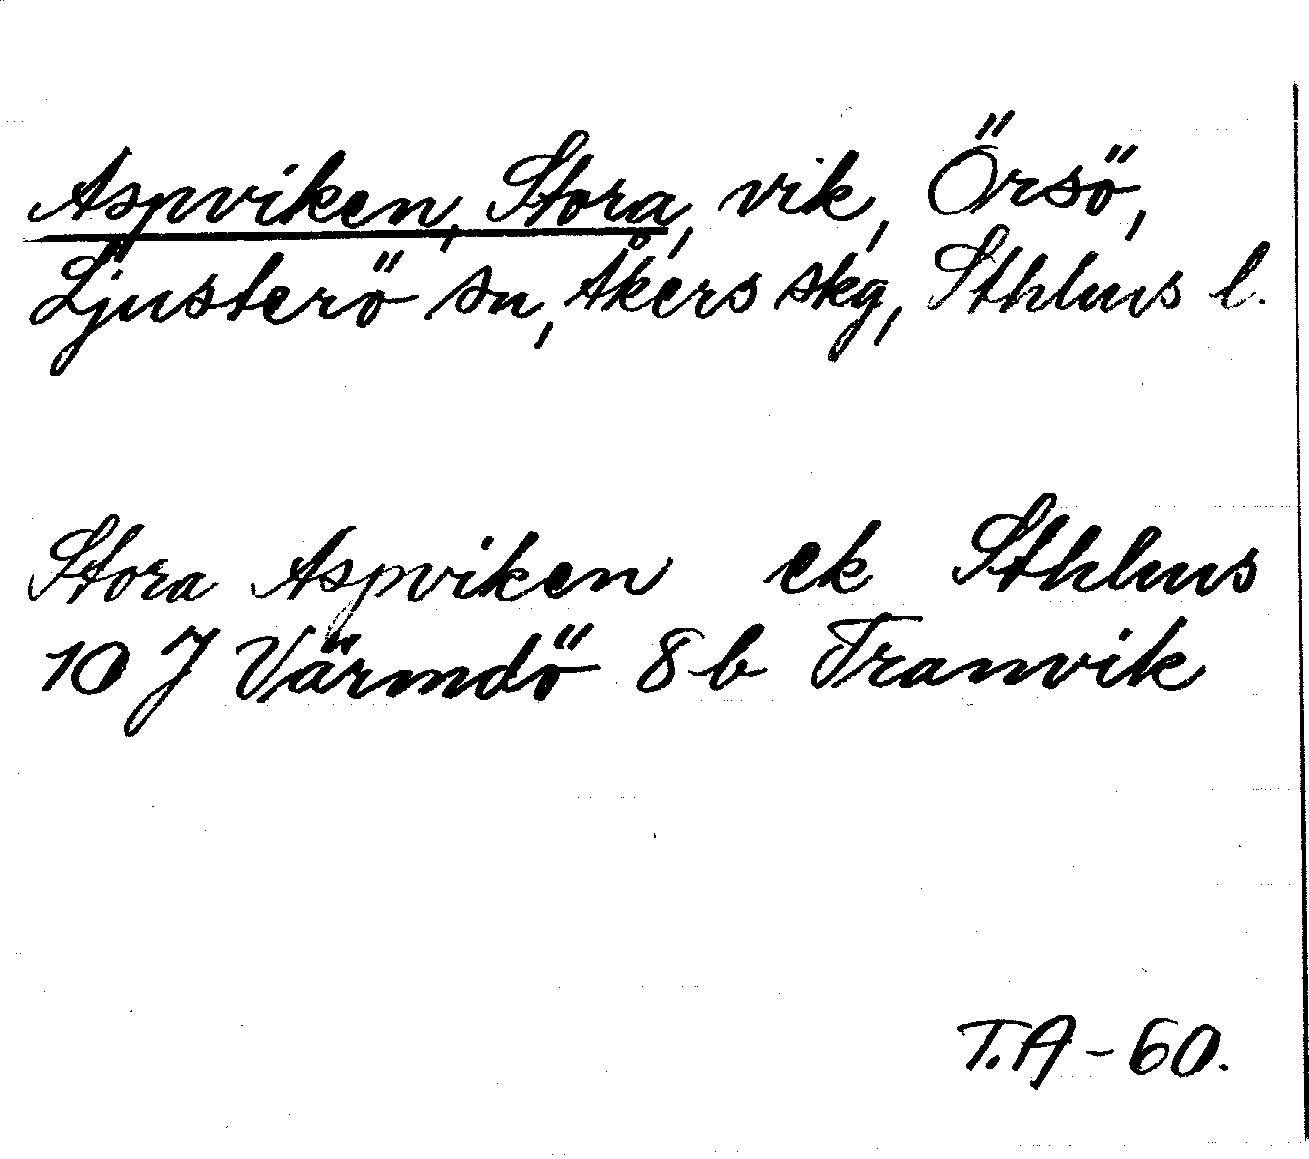 Aspviken, Stora, vik, Örsö,
Ljusterö sn, Åkers skg, Sthlms l.
Stora Aspviken ek Sthlms
10 J Värmdö 8 b Tranvik
T.A - 60.